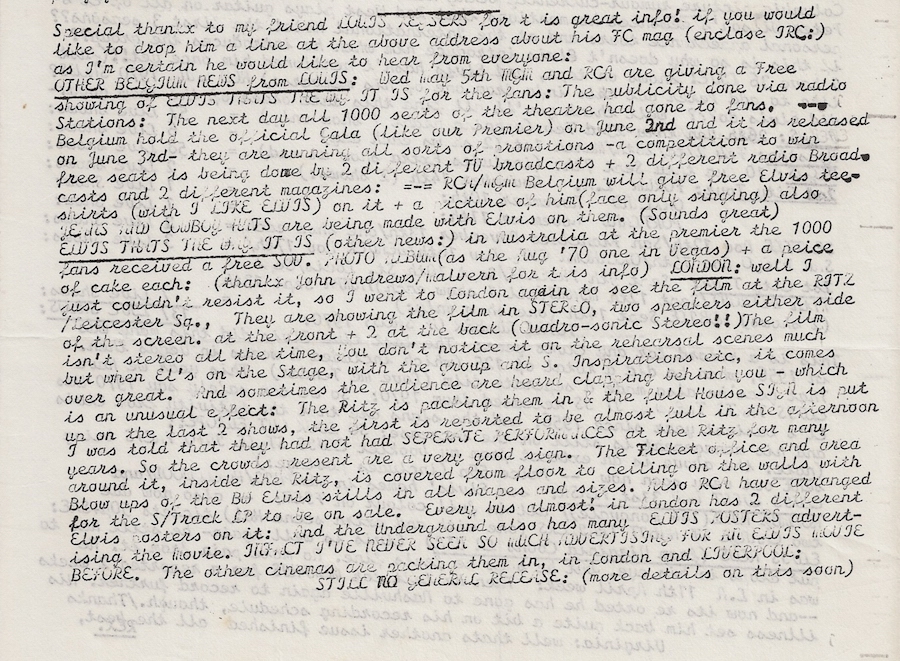 Special thanks to my friend LOUIS for t is great info! if you would
like to drop him a line at the above address about his FC mag (enclose IRC:)
as I'm certain he would like to hear from everyone:
OTHER BELGIUM NEWS from LOUIS: Wed May 5th MGM and RCA are giving a Free
showing of ELVIS THATS THE WAY IT IS for the fans: The publicity done via radio
Stations: The next day all 1000 seats of the theatre had gone to fans. ---
Belgium hold the official Gala (like our Premier) on June 2nd and it is released
on June 3rd- they are running all sorts of promotions -a competition to win
free seats is being done by 2 different TV broadcasts + 2 different radio Broad-
casts and 2 different magazines: =-= RCA/MGM Belgium will give free Elvis tee-
shirts (with I LIKE ELVIS) on it + a picture of him(face only singing) also
JEANS AND COWBOY HATS are being made with Elvis on them. (Sounds great)
ELVIS THATS THE WAY IT IS (other news:) in Australia at the premier the 1000
fans received a free SOU. PHOTO ALBUM(as the Aug '70 one in Vegas) + a peice
of cake each: (thankx John Andrews/Malvern for t is info) LONDON: well I
just couldn't resist it, so I went to London again to see the film at the RITZ
/Leicester Sq., They are showing the film in STEREO, two speakers either side
of th screen. at the front + 2 at the back (Quadro-sonic Stereo!!)The film
isn't stereo all the time, you don't notice it on the rehearsal scenes much
but when El's on the Stage, with the group and S. Inspirations etc, it comes
over great. And sometimes the audience are heard clapping behind you - which
is an unusual effect: The Ritz is packing them in & the full House SIGN is put
up on the last 2 shows, the first is reported to be almost full in the afternoon
I was told that they had not had SEPERATE PERFORMANCES at the Ritz for many
years. So the crowds present are a very good sign. The Ticket office and area
around it, inside the Ritz, is covered from floor to ceiling on the walls with
Blow ups of the BW Elvis stills in all shapes and sizes. Also RCA have arranged
for the S/Track LP to be on sale. Every bus almost! in London has 2 different
Elvis posters on it: And the Underground also has many ELVIS POSTERS advert-
ising the movie. INFACT I'VE NEVER SEEN SO MUCH ADVERTISING FOR AN ELVIS MOVIE
BEFORE. The other cinemas are packing them in, in London and LIVERPOOL:
STILL NO GENERAL RELEASE: (more details on this soon)